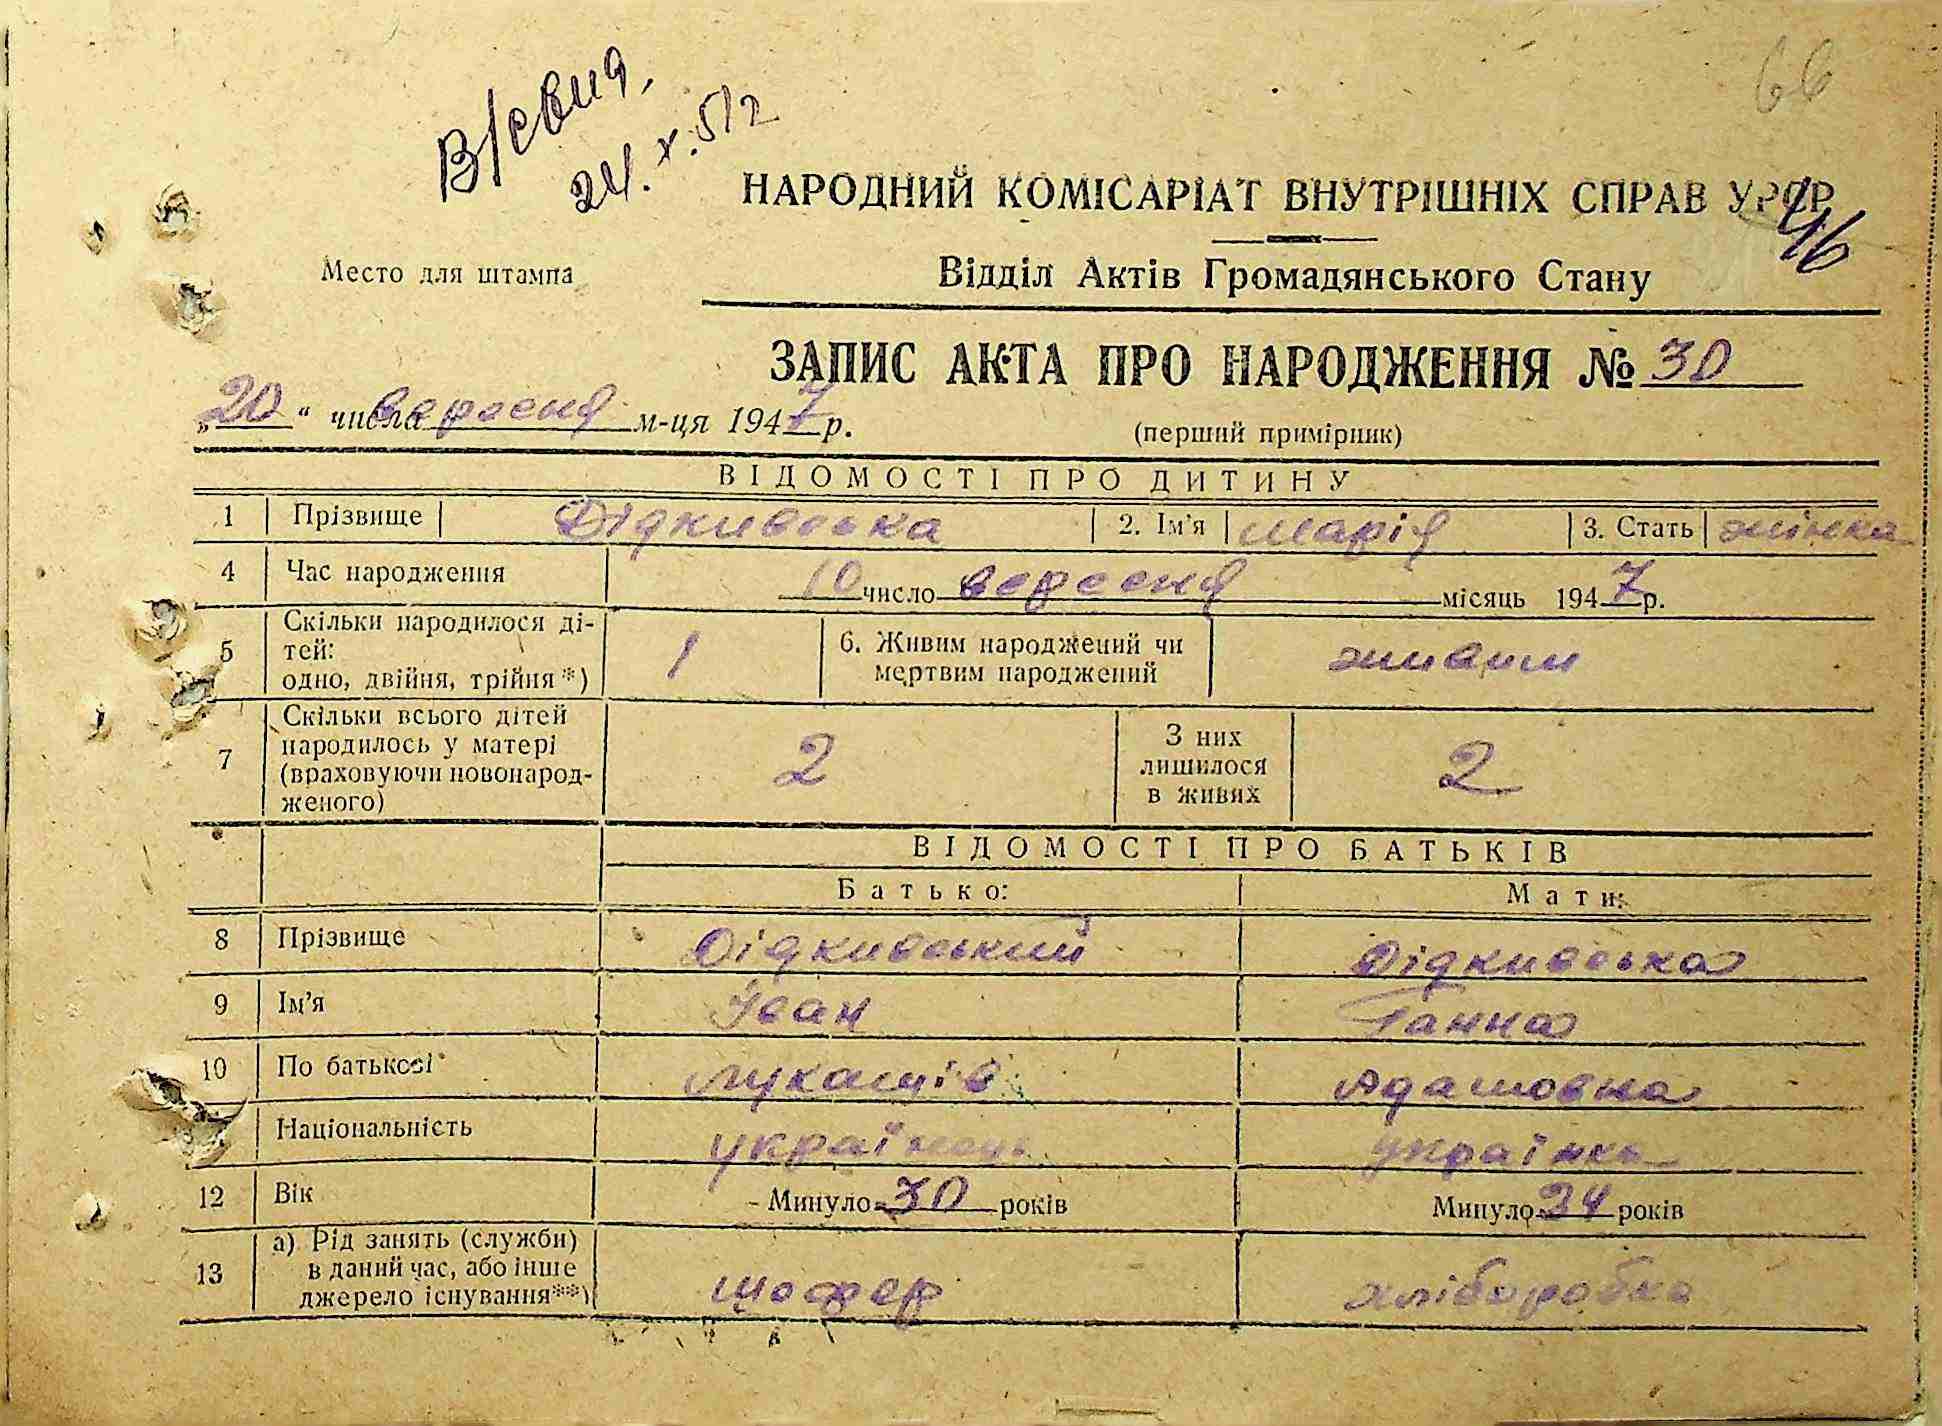 66
В/євид,
24.х.51г
НАРОДНИЙ КОМІСАРІАТ ВНУТРІШНІХ СПРАВ УРСР
46
Место для штампа
Відділ Актів Громадянського Стану
ЗАПИС АКТА ПРО НАРОДЖЕННЯ № 30
„20“ числа вересня м-ця 1947 р.
(перший примірник)
ВІДОМОСТІ ПРО ДИТИНУ
1 Прізвище Дідкивська 2. Ім'я Марія 3. Стать жінка
4 Час народження 10 число вересня місяць 1947 р.
5 Скільки народилося ді-
тей:
одно, двійня, трійня*) 1
6. Живим народжений чи
мертвим народжений живим
7 Скільки всього дітей
народилось у матері
(враховуючи новонарод-
женого) 2
З них
лишилося
в живих 2
ВІДОМОСТІ ПРО БАТЬКІВ
Батько: Мати:
8 Прізвище Дідкивський Дідкивська
9 Ім'я Іван Ганна
10 По батькові Лукашів Адамовна
Національність українець українка
12 Вік Минуло 30 років Минуло 24 років
13 а) Рід занять (служби)
в даний час, або інше
джерело існування**) шофер хліборобка